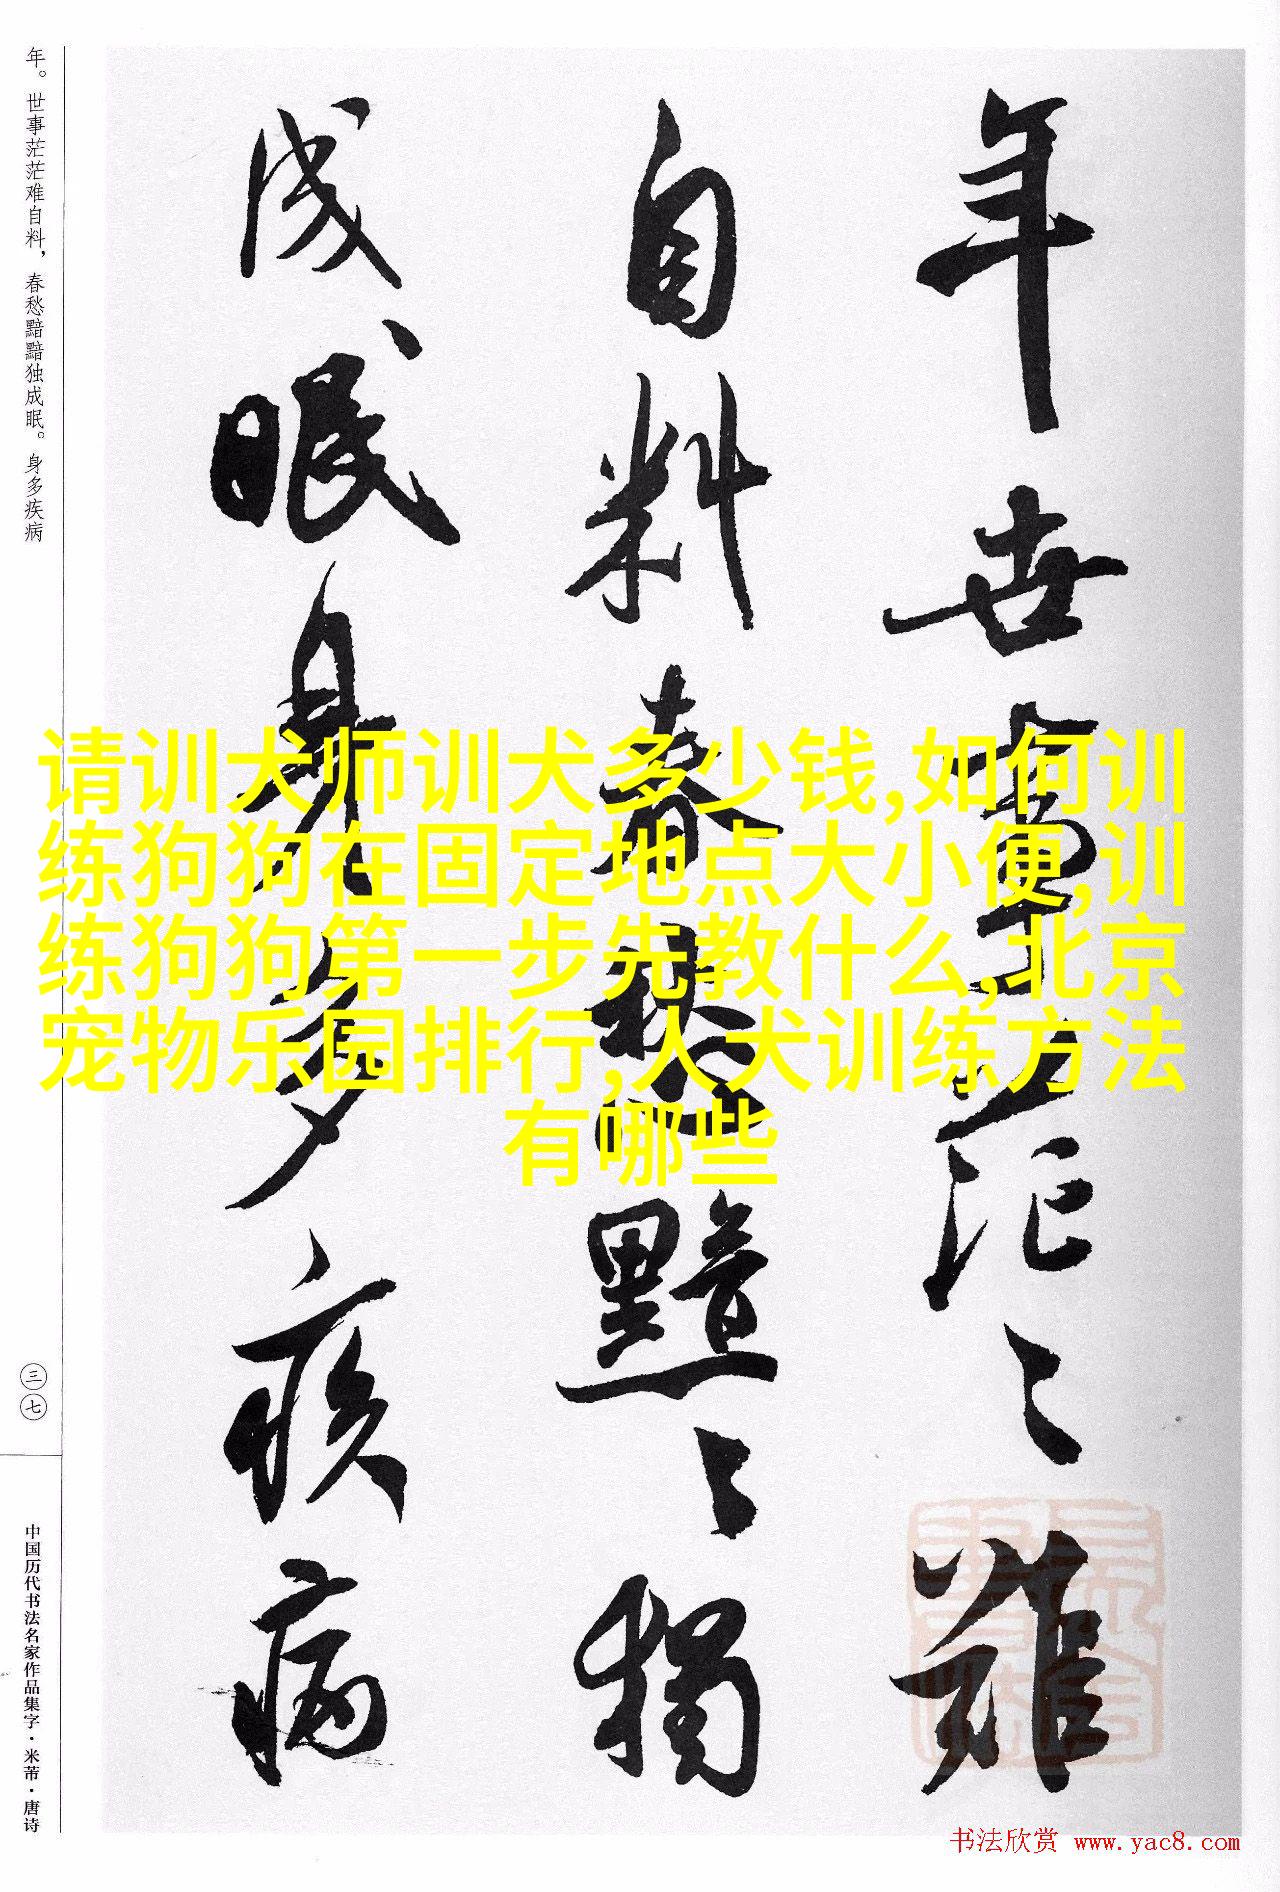 年。世事茫茫难自料，春愁黯黯独成眠。身多疾病
年世事茫〻難
自料春愁黯〻獨
成眠身多疾病
请训犬师训犬多少钱,如何训
练狗狗在固定地点大小便,训
练狗狗第一步先教什么,北京
宠物乐园排行,人犬训练方法
有哪些
三七
中国历代书法名家作品集字·米芾·唐诗
书法欣赏 www.yac8.com